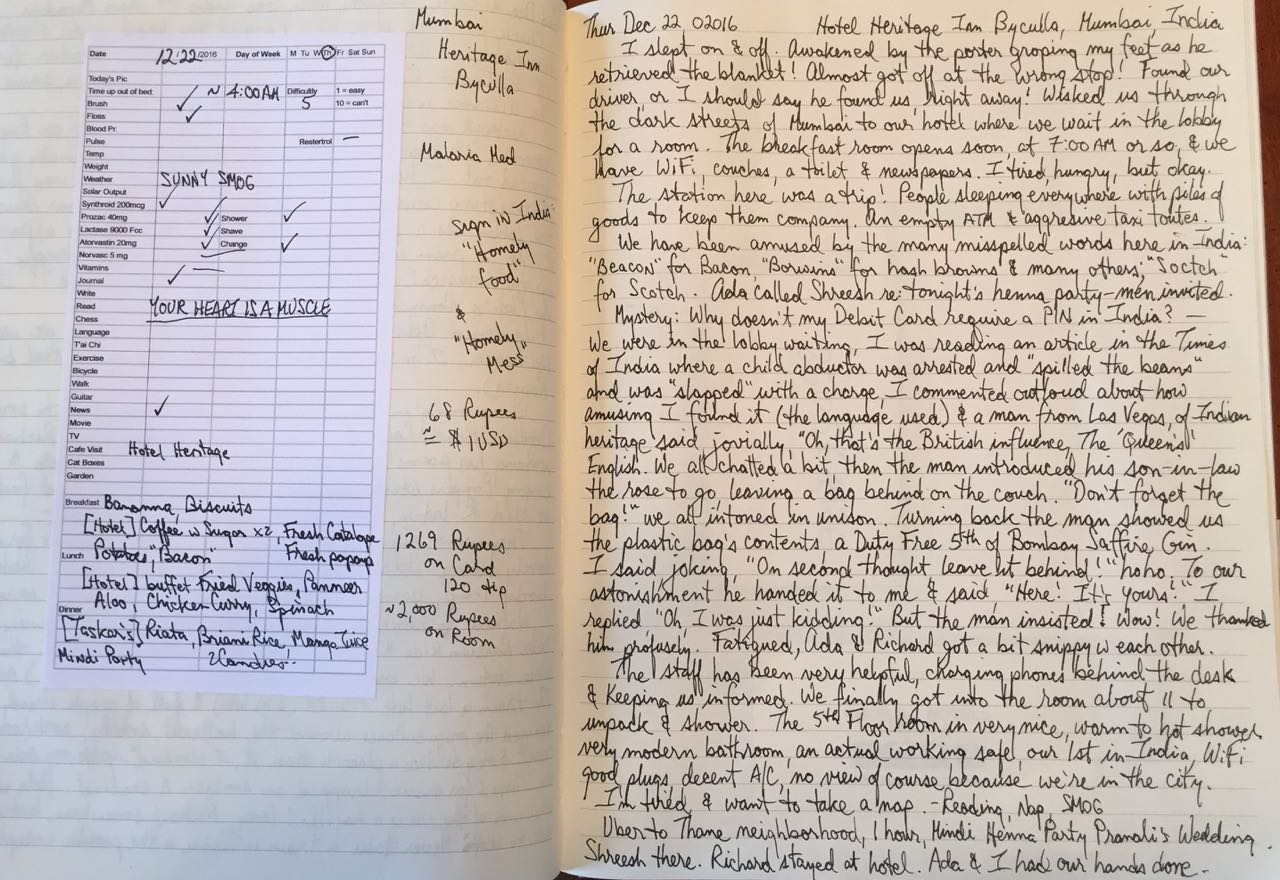 Date 12/22/2016 Day of Week M Tu W Th Fr Sat Sun
Today's Pic
Time up out of bed: ~ 4:00AM Difficulty 1 = easy
Brush 5 10 = can't
Floss
Blood Pr.
Pulse Restertrol —
Temp
Weight
Weather SUNNY SMOG
Solar Output
Synthroid 200mcg
Prozac 40mg Shower
Lactase 9000 Fcc Shave
Atorvastin 20mg Change
Norvasc 5 mg
Vitamins
Journal
Write
Read YOUR HEART IS A MUSCLE
Chess
Language
T'ai Chi
Exercise
Bicycle
Walk
Guitar
News
Movie
TV
Cafe Visit Hotel Heritage
Cat Boxes
Garden
Breakfast Bananna Biscuits
[Hotel] Coffee w Sugar x2, Fresh Catalope
Lunch Potatoes, "Bacon" Fresh papaya
[Hotel] buffet Fried Veggies, Panneer
Aloo, Chicken Curry, Spinach
Dinner
[Taskar's] Riata, Briani Rice, Mango Juice
Mindi Party 2 Candies
Mumbai
Heritage Inn
Byculla
Malaria Med
sign in India:
"Homely
food"
&
"Homely
Mess"
68 Rupees
≈ $1 USD
1269 Rupees
on Card
120 tip
~2,000 Rupees
on Room
Thur Dec 22 02016 Hotel Heritage Inn Byculla, Mumbai, India
I slept on & off. Awakened by the porter groping my feet as he
retrieved the blanket! Almost got off at the wrong stop! Found our
driver, or I should say he found us right away! Wisked us through
the dark streets of Mumbai to our hotel where we wait in the lobby
for a room. The breakfast room opens soon, at 7:00 AM or so, & we
have WiFi, couches, a toilet & newspapers. I tired, hungry, but okay.
The station here was a trip! People sleeping everywhere with piles of
goods to keep them company. An empty ATM & aggresive taxi toutes.
We have been amused by the many misspelled words here in India:
"Beacon" for Bacon, "Borwins" for hash browns & many others; "Soctch"
for Scotch. Ada called Shreesh re: tonight's henna party–men invited.
Mystery: Why doesn't my Debit Card require a PIN in India? —
We were in the lobby waiting, I was reading an article in the Times
of India where a child abductor was arrested and "spilled the beans"
and was "slapped" with a charge. I commented outloud about how
amusing I found it (the language used) & a man from Las Vegas, of Indian
heritage said jovially, "Oh, that's the British influence, The 'Queen's'
English. We all chatted a bit then the man introduced his son-in-law
the rose to go, leaving a bag behind on the couch. "Don't forget the
bag!" we all intoned in unison. Turning back the man showed us
the plastic bag's contents, a Duty Free 5th of Bombay Saffire Gin.
I said joking, "On second thought leave it behind!" hoho. To our
astonishment he handed it to me & said, "Here! It's yours!" I
replied "Oh, I was just kidding!" But the man insisted! Wow! We thanked
him profusely. Fatigued, Ada & Richard got a bit snippy w each other.
The staff has been very helpful, charging phones behind the desk
& keeping us informed. We finally got into the room about 11 to
unpack & shower. The 5th Floor room in very nice, warm to hot shower
very modern bathroom, an actual working safe, our 1st in India, WiFi
good plugs, decent A/C, no view of course because we're in the city.
I'm tired & want to take a nap. –Reading, Nap, SMOG
Uber to Thane neighborhood, 1 hour, Mindi Henna Party Pranali's Wedding.
Shreesh there. Richard stayed at hotel. Ada & I had our hands done.